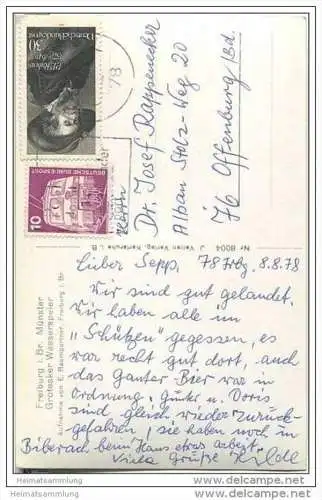 P.P. Rubens
1577-1640
Deutsche Bundespost
30
78
DEUTSCHE BUNDESPOST
10
Dr. Josef Rappenecker
Alban Stolz-Weg 20
76 Offenburg/Bd.
Nr 8004 J. Verlag, Karlsruhe i. B.
Freiburg i. Br. Münster
Grotesker Wasserspeier
Aufnahme von E. Baumgartner, Freiburg i. Br.
Lieber Sepp, 78 Frbg. 8.8.78
Wir sind gut gelandet.
Wir haben alle im
„Schützen" gegessen, es
war recht gut dort, auch
das Ganter Bier war in
Ordnung. Günter u. Doris
sind gleich wieder zurück-
gefahren, sie haben noch in
Biberach beim Haus etwas arbeit.
Viele Grüße Hilde
Heimatsammlung.net
Heimatsammlung.net